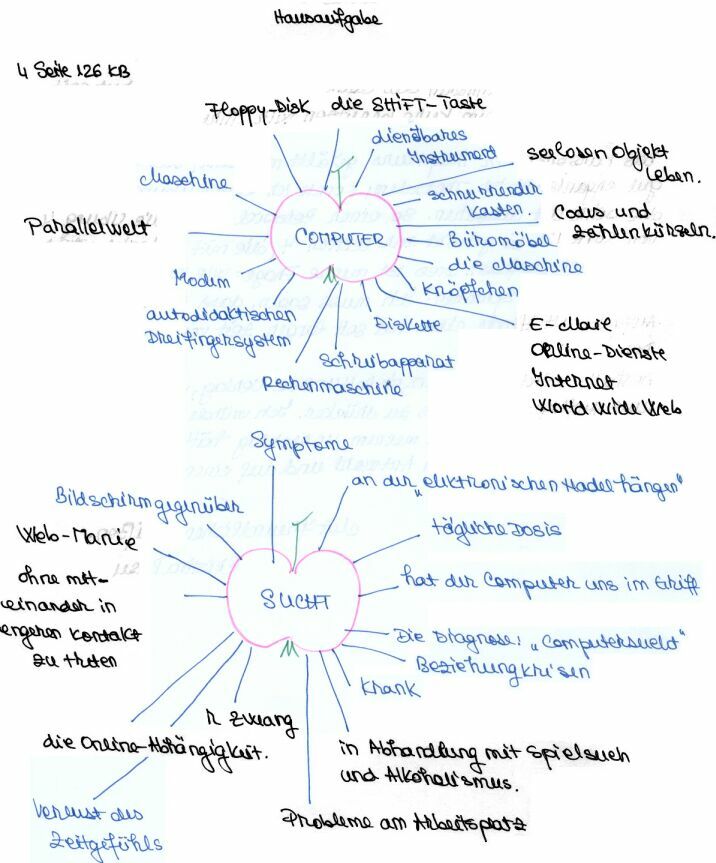 Hausaufgabe
4 Seite 126 KB
Floppy-Disk
die SHiFT-Taste
dienstbares
Instrument
seelosen Objekt
leben.
Maschine
schnurrender
Kasten.
Codus und
Zahlenkürzeln.
Parallelwelt
COMPUTER
Büromöbel
die Maschine
Modem
Knöpfchen
autodidaktischen
Dreifingersystem
Diskette
E-Mail
Online-Dienste
Internet
World Wide Web
Schreibapparat
Rechenmaschine
Symptome
an der „elektronischen Nadel hängen"
Bildschirmgegenüber
tägliche Dosis
Web-Manie
hat der Computer uns im Griff
ohne mit-
einander in
engeren Kontakt
zu treten
SUCHT
Die Diagnose: „Computersucht"
Beziehungkrisen
Krank
r Zwang
die Online-Abhängigkeit.
in Abhandlung mit Spielsuch
und Alkoholismus.
Verlust des
Zeitgefühls
Probleme am Arbeitsplatz